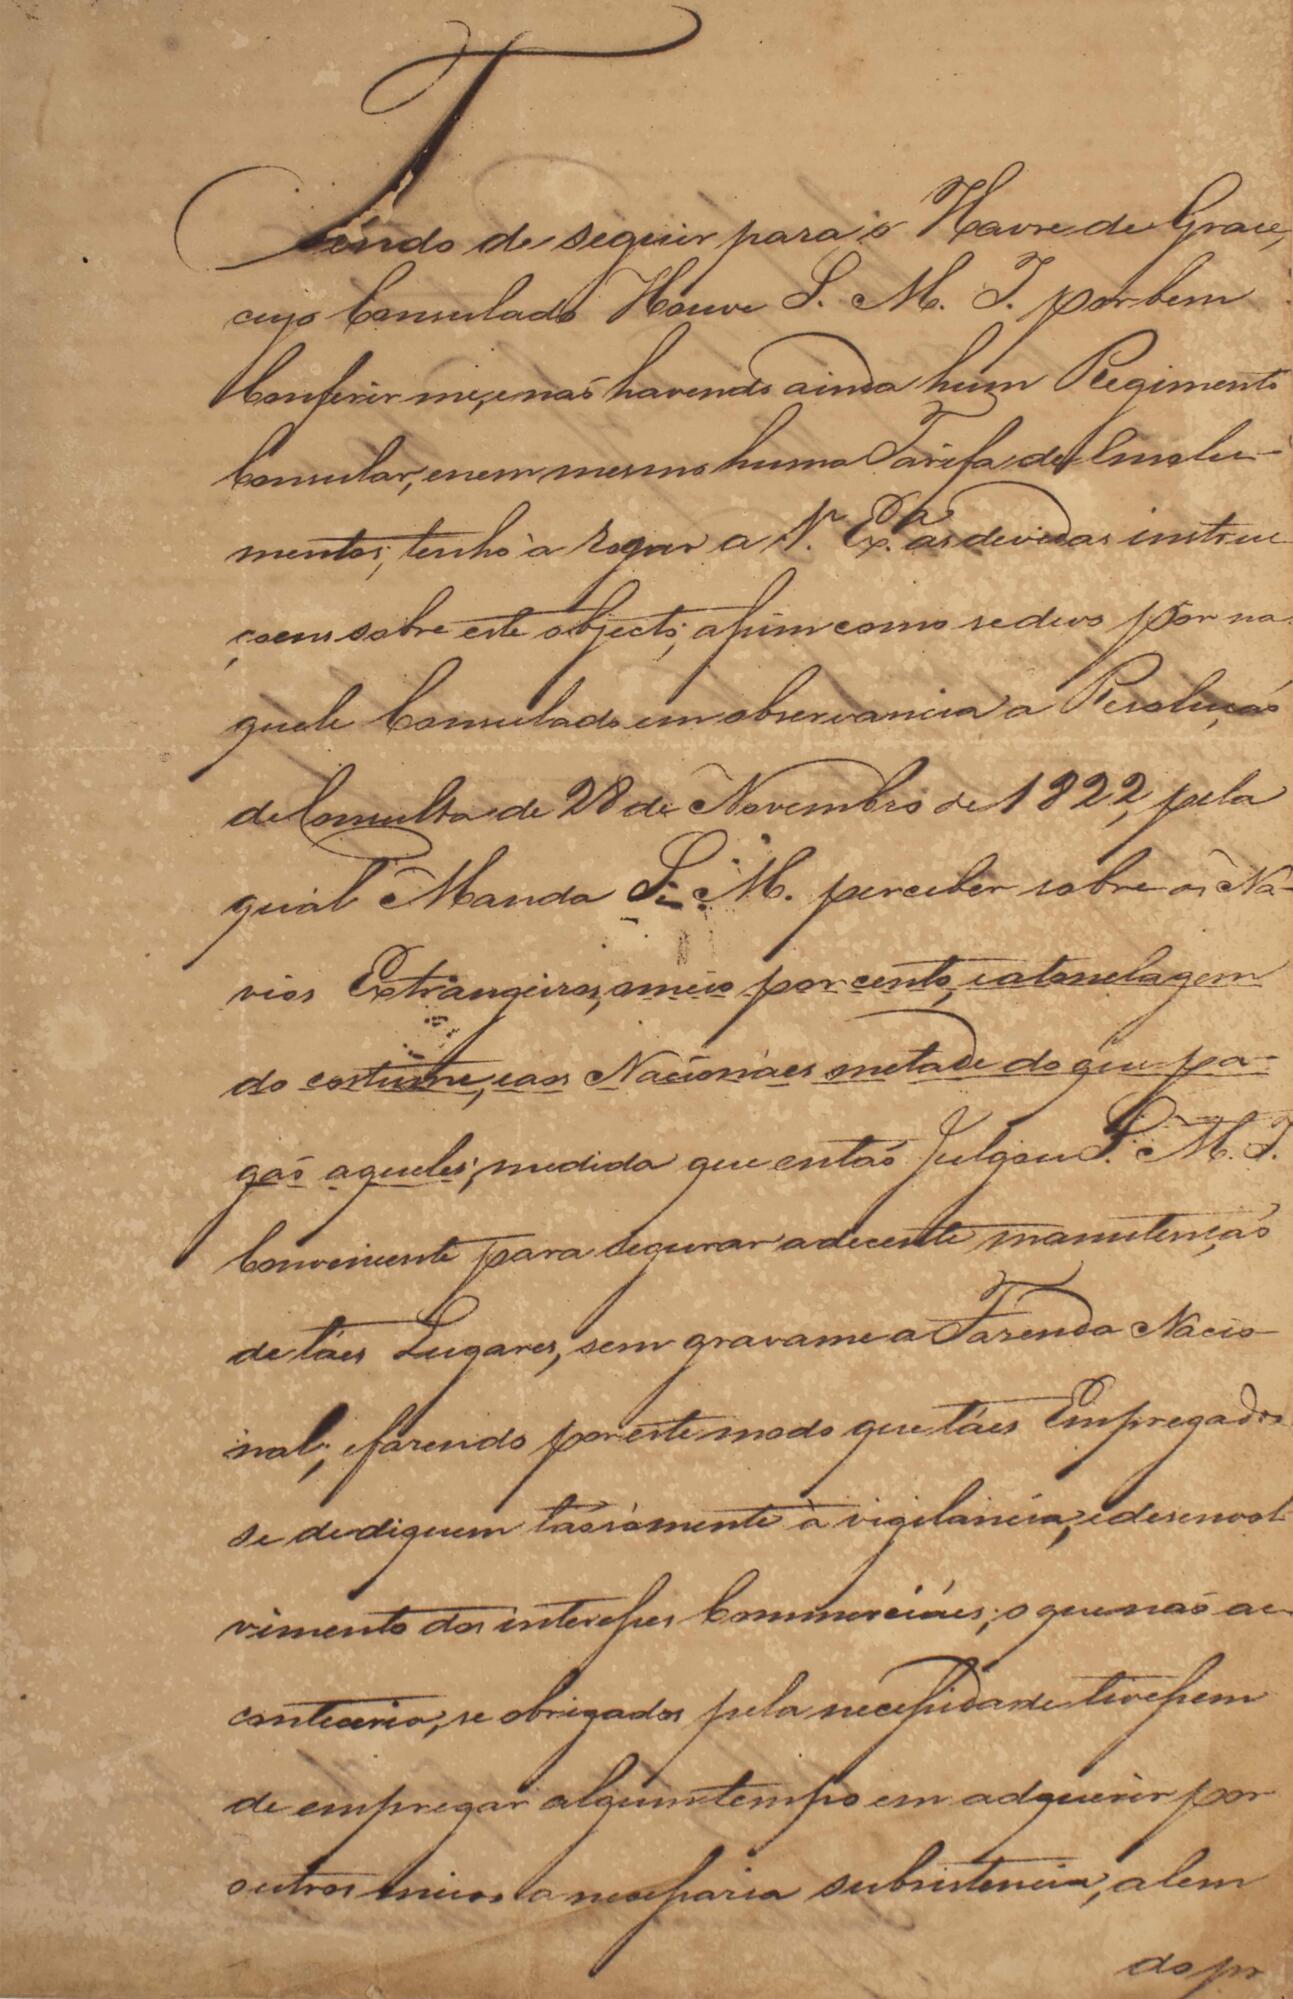 Tendo de seguir para o Havre de Grace,
cujo Consulado Houve S. M. I. por bem
Conferir me, e naõ havendo ainda hum Regimento
Consular, e nem mesmo huma Tarifa de Emolu-
mentos, tenho à rogar a V. Ex.ª as devidas instruc
çoens sobre este objecto, assim como se devo pôr na-
quele Consulado em observancia a Resoluçaõ
de Consulta de 28 de Novembro de 1822, pela
qual Manda S. M. perceber sobre os Na-
vios Extrangeiros, o meio por cento, e a tonelagem
do costume, e aos Nacionáes metade do que pa-
gaõ aqueles; medida que entaõ Julgou S. M. I.
Conveniente para segurar a decente manutençaõ
de táes Lugares, sem gravame a Fazenda Nacio-
nal; e fazendo por este modo que táes Empregados
se dediquem taõ sómente à vigilancia, e desenvol-
vimento dos interesses Commerciáes; o que naõ a-
conteceria, se obrigados pela necessidade tivessem
de empregar algum tempo em adquirir por
outros meios a necessaria subsistencia, alem
do pr